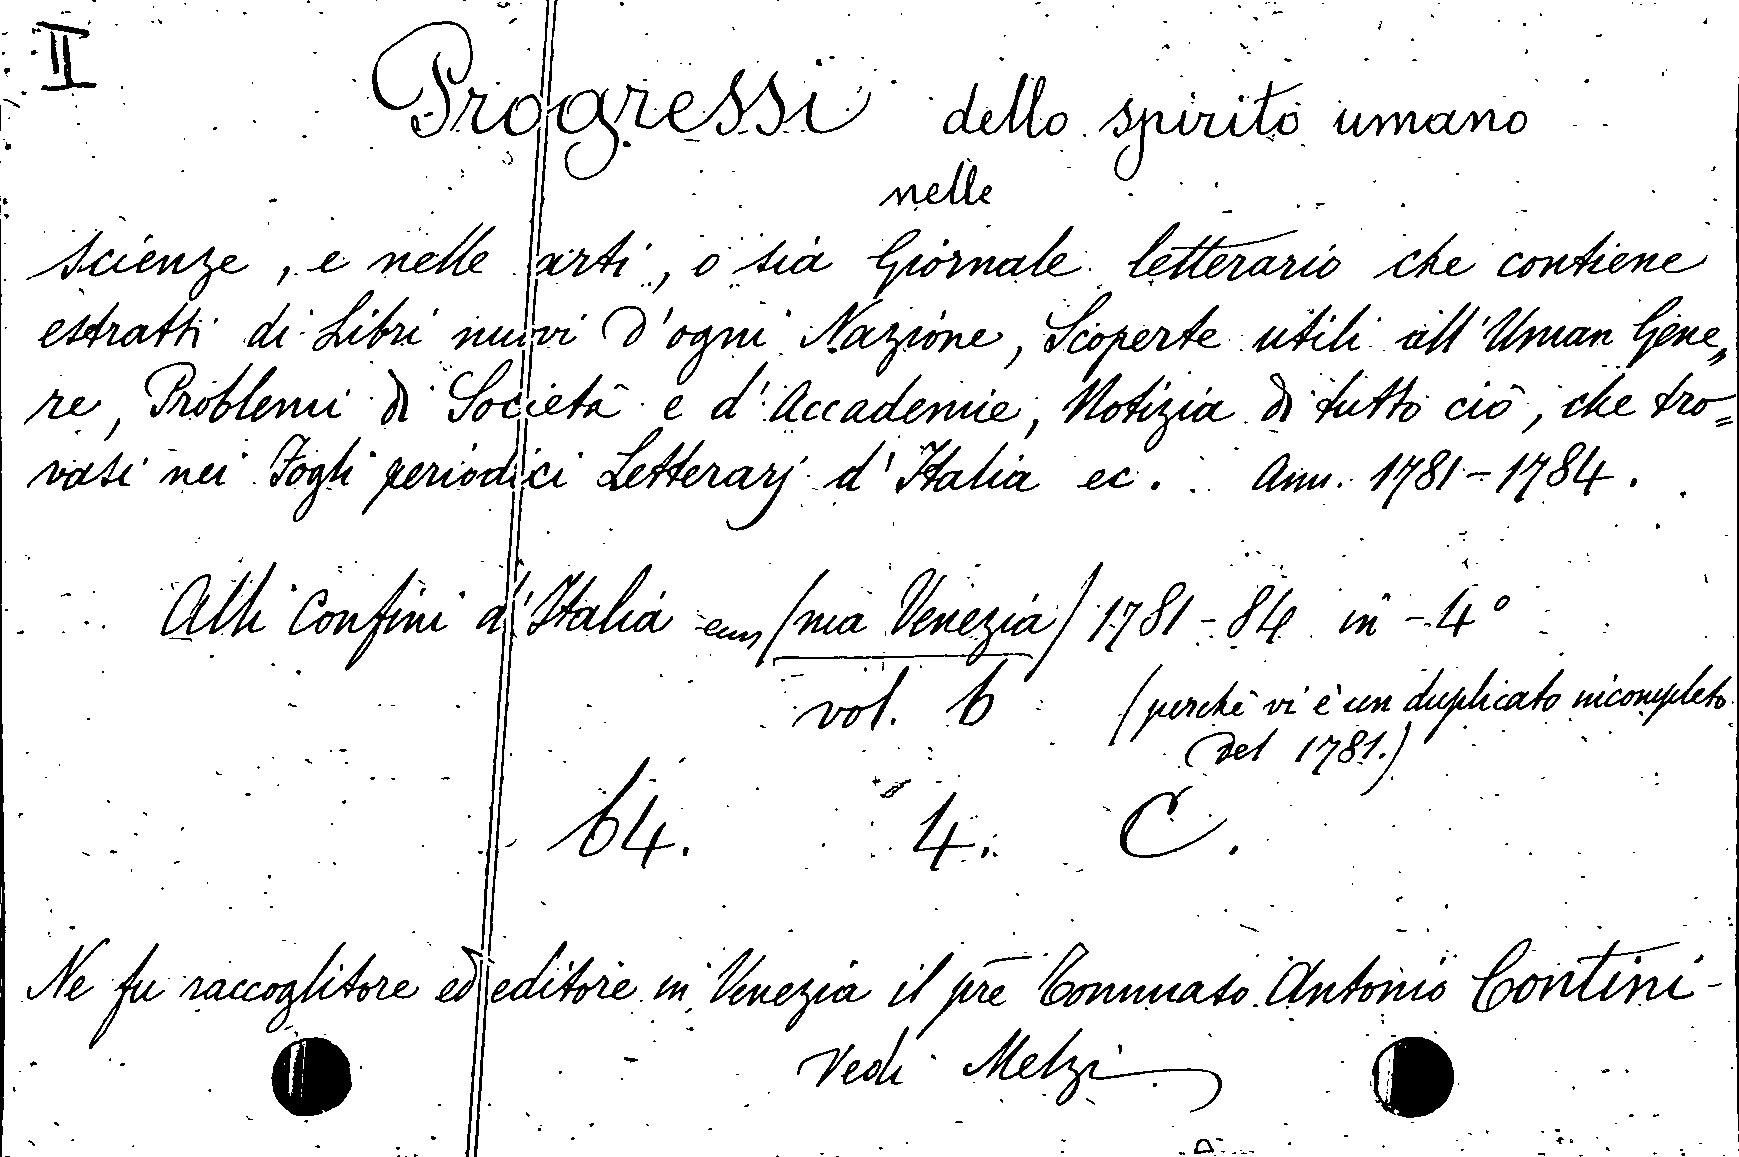 II
Progressi dello spirito umano
nelle
scienze, e nelle arti, o sia Giornale letterario che contiene
estratti di Libri nuovi d'ogni Nazione, Scoperte utili all'Uman Gene„
re, Problemi di Società e d'Accademie, Notizia di tutto ciò, che tro=
vasi nei Fogli periodici Letterarj d'Italia ec. Ann. 1781-1784.
Alli Confini d'Italia (ma Venezia) 1781-84 in-4°
vol. 6 (perchè vi è un duplicato incompleto
del 1781.)
64. 4. C.
Ne fu raccoglitore ed editore in Venezia il pre Tommaso Antonio Contini
Vedi Melzi